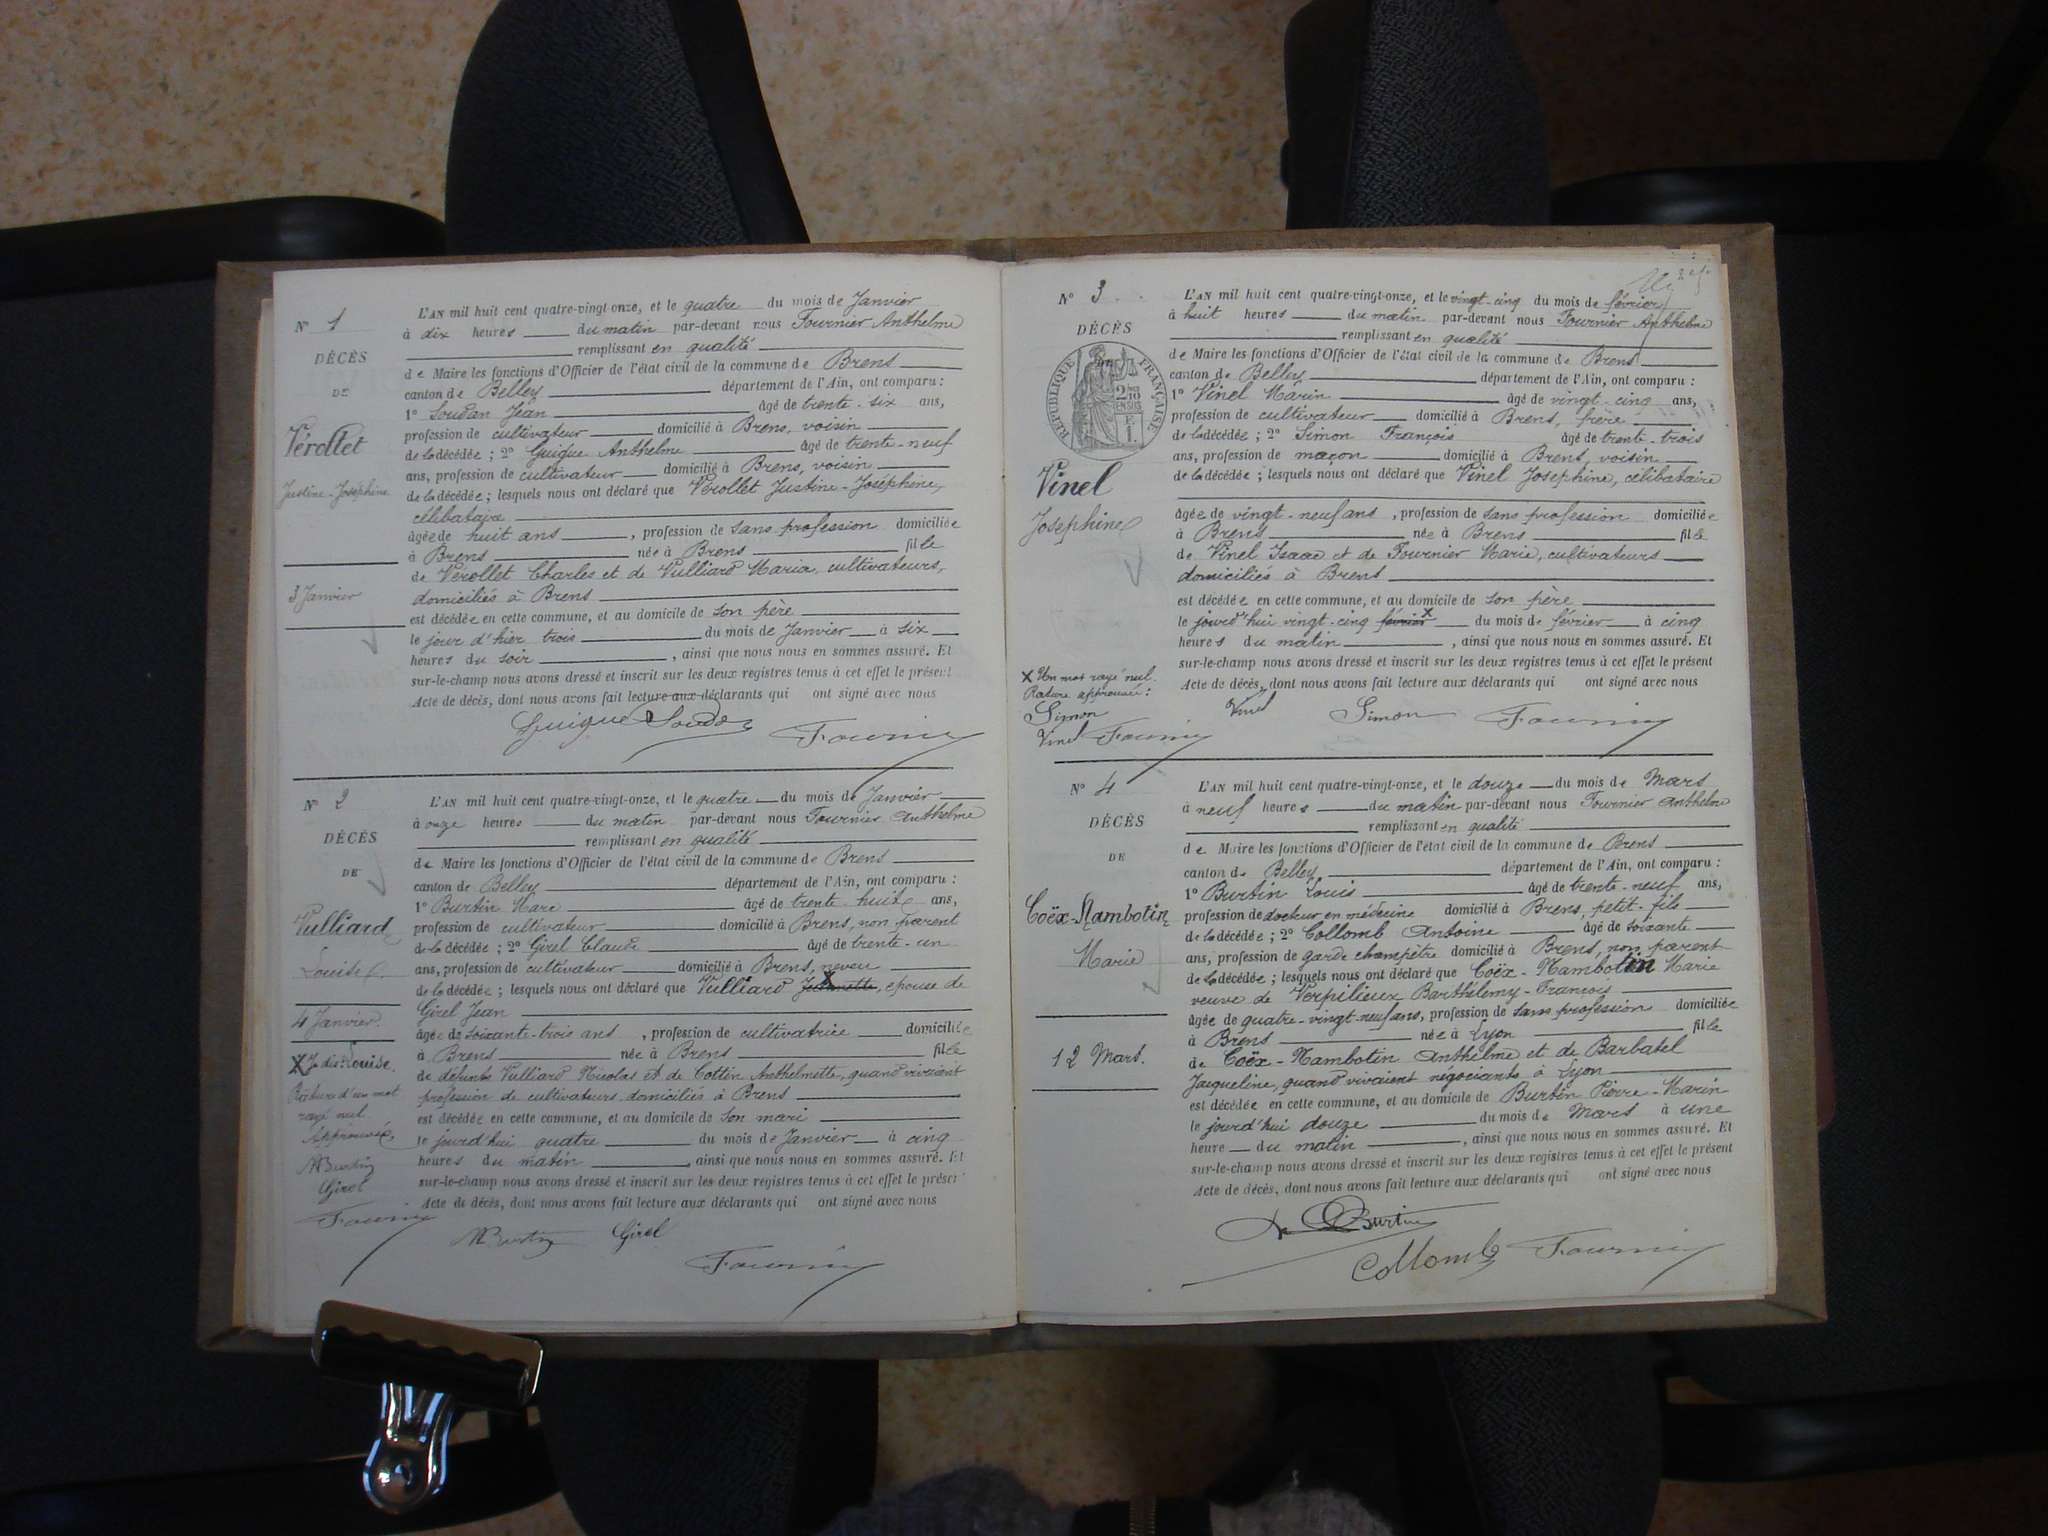 N° 1
DÉCÈS
DE
Vérollet
Justine-Joséphine
3 Janvier
L'AN mil huit cent quatre-vingt-onze, et le quatre du mois de Janvier
à dix heures du matin par-devant nous Fournier Anthelme
remplissant en qualité
de Maire les fonctions d'Officier de l'état civil de la commune de Brens
canton de Belley département de l'Ain, ont comparu :
1° Soudan Jean âgé de trente-six ans,
profession de cultivateur domicilié à Brens, voisin
de la décédée ; 2° Guigue Anthelme âgé de trente-neuf
ans, profession de cultivateur domicilié à Brens, voisin
de la décédée ; lesquels nous ont déclaré que Vérollet Justine-Joséphine,
célibataire
âgée de huit ans, profession de sans profession domiciliée
à Brens née à Brens fille
de Vérollet Charles et de Vulliard Maria, cultivateurs,
domiciliés à Brens
est décédée en cette commune, et au domicile de son père
le jour d'hier trois du mois de Janvier à six
heures du soir, ainsi que nous nous en sommes assuré. Et
sur-le-champ nous avons dressé et inscrit sur les deux registres tenus à cet effet le présent
Acte de décès, dont nous avons fait lecture aux déclarants qui ont signé avec nous
Guigue Soudan Fournier
N° 2
DÉCÈS
DE
Vulliard
Louise
4 Janvier.
X Je dis: Louise.
Rature d'un mot
rayé nul.
Approuvée
MBurtin
Girel
Fournier
L'AN mil huit cent quatre-vingt-onze, et le quatre du mois de Janvier
à onze heures du matin par-devant nous Fournier Anthelme
remplissant en qualité
de Maire les fonctions d'Officier de l'état civil de la commune de Brens
canton de Belley département de l'Ain, ont comparu :
1° Burtin Marc âgé de trente-huit ans,
profession de cultivateur domicilié à Brens, non parent
de la décédée ; 2° Girel Claude âgé de trente-un
ans, profession de cultivateur domicilié à Brens, neveu
de la décédée ; lesquels nous ont déclaré que Vulliard X, épouse de
Girel Jean
âgée de soixante-trois ans, profession de cultivatrice domiciliée
à Brens née à Brens fille
de défunts Vulliard Nicolas et de Cottin Anthelmette, quand vivaient
profession de cultivateurs domiciliés à Brens
est décédée en cette commune, et au domicile de son mari
le jourd'hui quatre du mois de Janvier à cinq
heures du matin, ainsi que nous nous en sommes assuré. Et
sur-le-champ nous avons dressé et inscrit sur les deux registres tenus à cet effet le présent
Acte de décès, dont nous avons fait lecture aux déclarants qui ont signé avec nous
MBurtin Girel
Fournier
N° 3
DÉCÈS
RÉPUBLIQUE FRANÇAISE
Vinel
Joséphine
X Un mot rayé nul.
Rature approuvée :
Simon
Vinel Fournier
L'AN mil huit cent quatre-vingt-onze, et le vingt-cinq du mois de février
à huit heures du matin par-devant nous Fournier Anthelme
remplissant en qualité
de Maire les fonctions d'Officier de l'état civil de la commune de Brens
canton de Belley département de l'Ain, ont comparu :
1° Vinel Marin âgé de vingt-cinq ans,
profession de cultivateur domicilié à Brens, frère
de la décédée ; 2° Simon François âgé de trente-trois
ans, profession de maçon domicilié à Brens, voisin
de la décédée ; lesquels nous ont déclaré que Vinel Joséphine, célibataire
âgée de vingt-neuf ans, profession de sans profession domiciliée
à Brens née à Brens fille
de Vinel Isaac et de Fournier Marie, cultivateurs
domiciliés à Brens
est décédée en cette commune, et au domicile de son père
le jourd'hui vingt-cinq février X du mois de février à cinq
heures du matin, ainsi que nous nous en sommes assuré. Et
sur-le-champ nous avons dressé et inscrit sur les deux registres tenus à cet effet le présent
Acte de décès, dont nous avons fait lecture aux déclarants qui ont signé avec nous
Vinel Simon Fournier
N° 4
DÉCÈS
DE
Coëx-Mambotin
Marie
12 Mars.
L'AN mil huit cent quatre-vingt-onze, et le douze du mois de Mars
à neuf heures du matin par-devant nous Fournier Anthelme
remplissant en qualité
de Maire les fonctions d'Officier de l'état civil de la commune de Brens
canton de Belley département de l'Ain, ont comparu :
1° Burtin Louis âgé de trente-neuf ans,
profession de docteur en médecine domicilié à Brens, petit-fils
de la décédée ; 2° Collomb Antoine âgé de soixante
ans, profession de garde champêtre domicilié à Brens, non parent
de la décédée ; lesquels nous ont déclaré que Coëx-Mambotin Marie
veuve de Verpilieux Barthélemy-François
âgée de quatre-vingt-neuf ans, profession de sans profession domiciliée
à Brens née à Lyon fille
de Coëx-Mambotin Anthelme et de Barbatel
Jacqueline, quand vivaient négociants à Lyon
est décédée en cette commune, et au domicile de Burtin Pierre-Marin
le jourd'hui douze du mois de Mars à une
heure du matin, ainsi que nous nous en sommes assuré. Et
sur-le-champ nous avons dressé et inscrit sur les deux registres tenus à cet effet le présent
Acte de décès, dont nous avons fait lecture aux déclarants qui ont signé avec nous
Burtin
Collomb Fournier